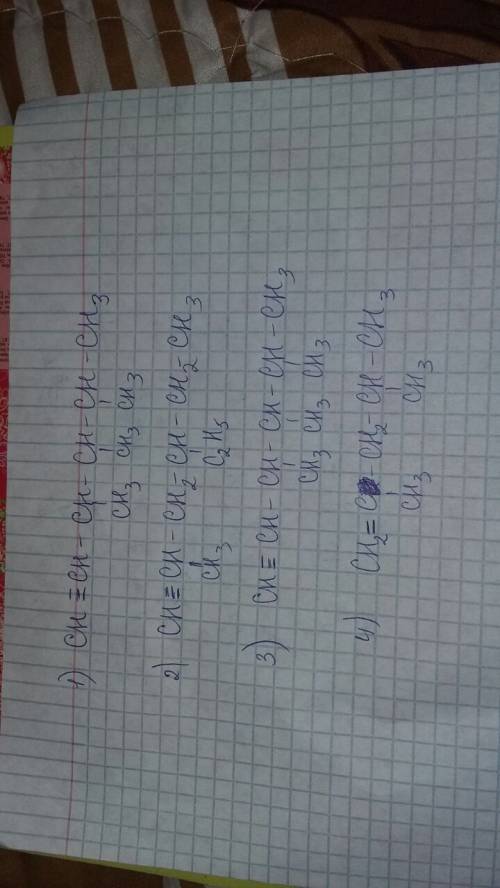 1) CH≡CH-CH-CH-CH-CH3
CH3 CH3 CH3
2) CH≡CH-CH2-CH-CH2-CH3
CH3 C2H5
3) CH=CH-CH-CH-CH-CH3
CH3 CH3 CH3
4) CH2=C-CH2-CH-CH3
CH3 CH3